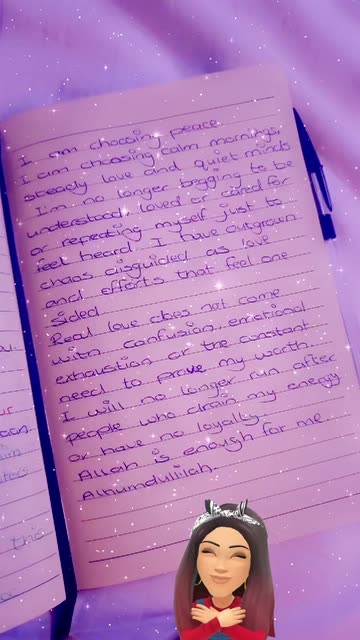 I am choosing peace
I am choosing calm mornings,
steady love and quiet minds
I'm no longer begging to be
understood, loved or cared for
or repeating myself just to
feel heard. I have outgrown
chaos disguided as love
and efforts that feel one
sided.
Real love does not come
with confusion, emotional
exhaustion or the constant
need to prove my worth.
I will no longer run after
people who drain my energy
or have no loyalty.
Allah is enough for me
Alhumdulilah.
this